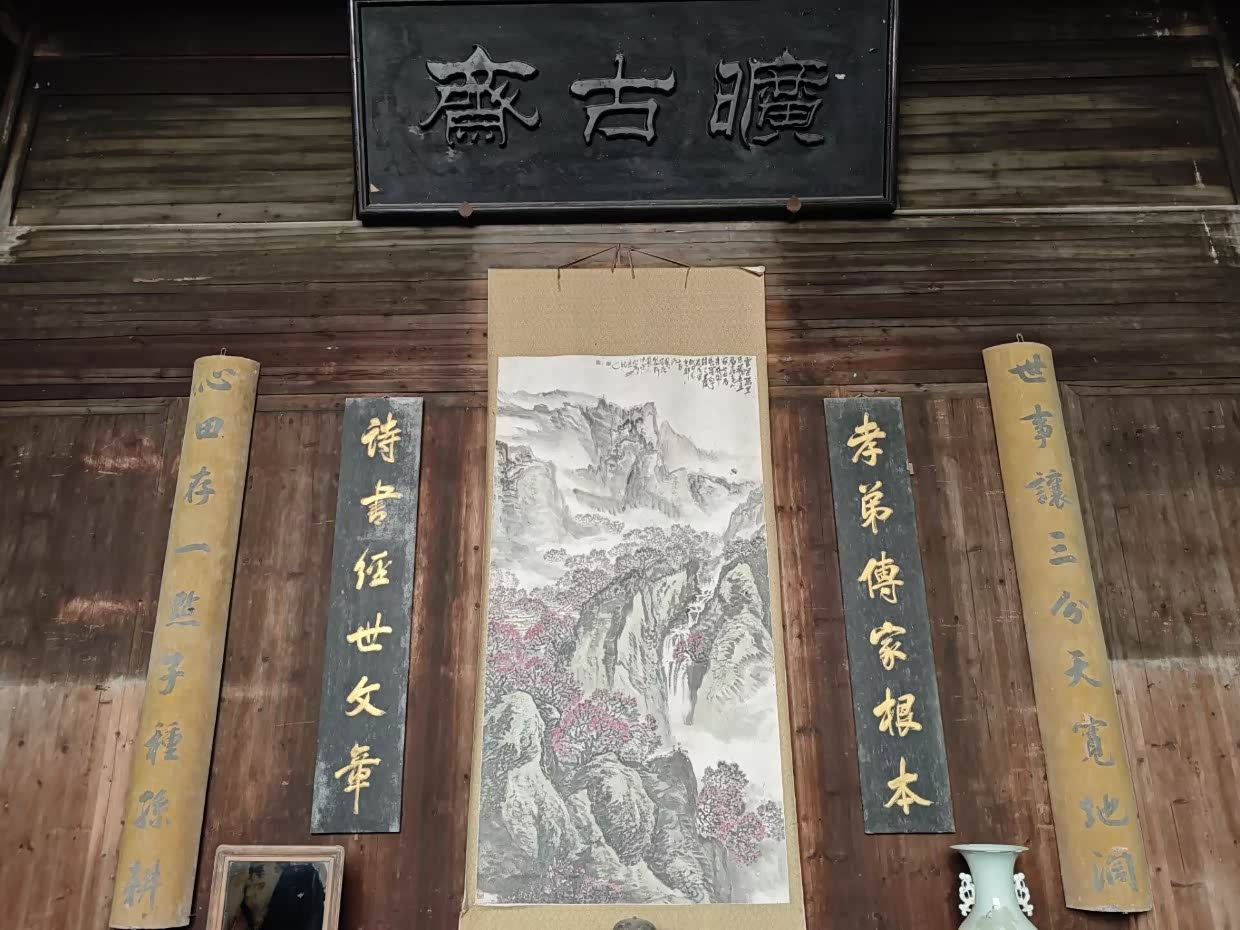 曠古齋
世事讓三分天寬地濶
孝弟傳家根本
詩書經世文章
心田存一點子種孫耕